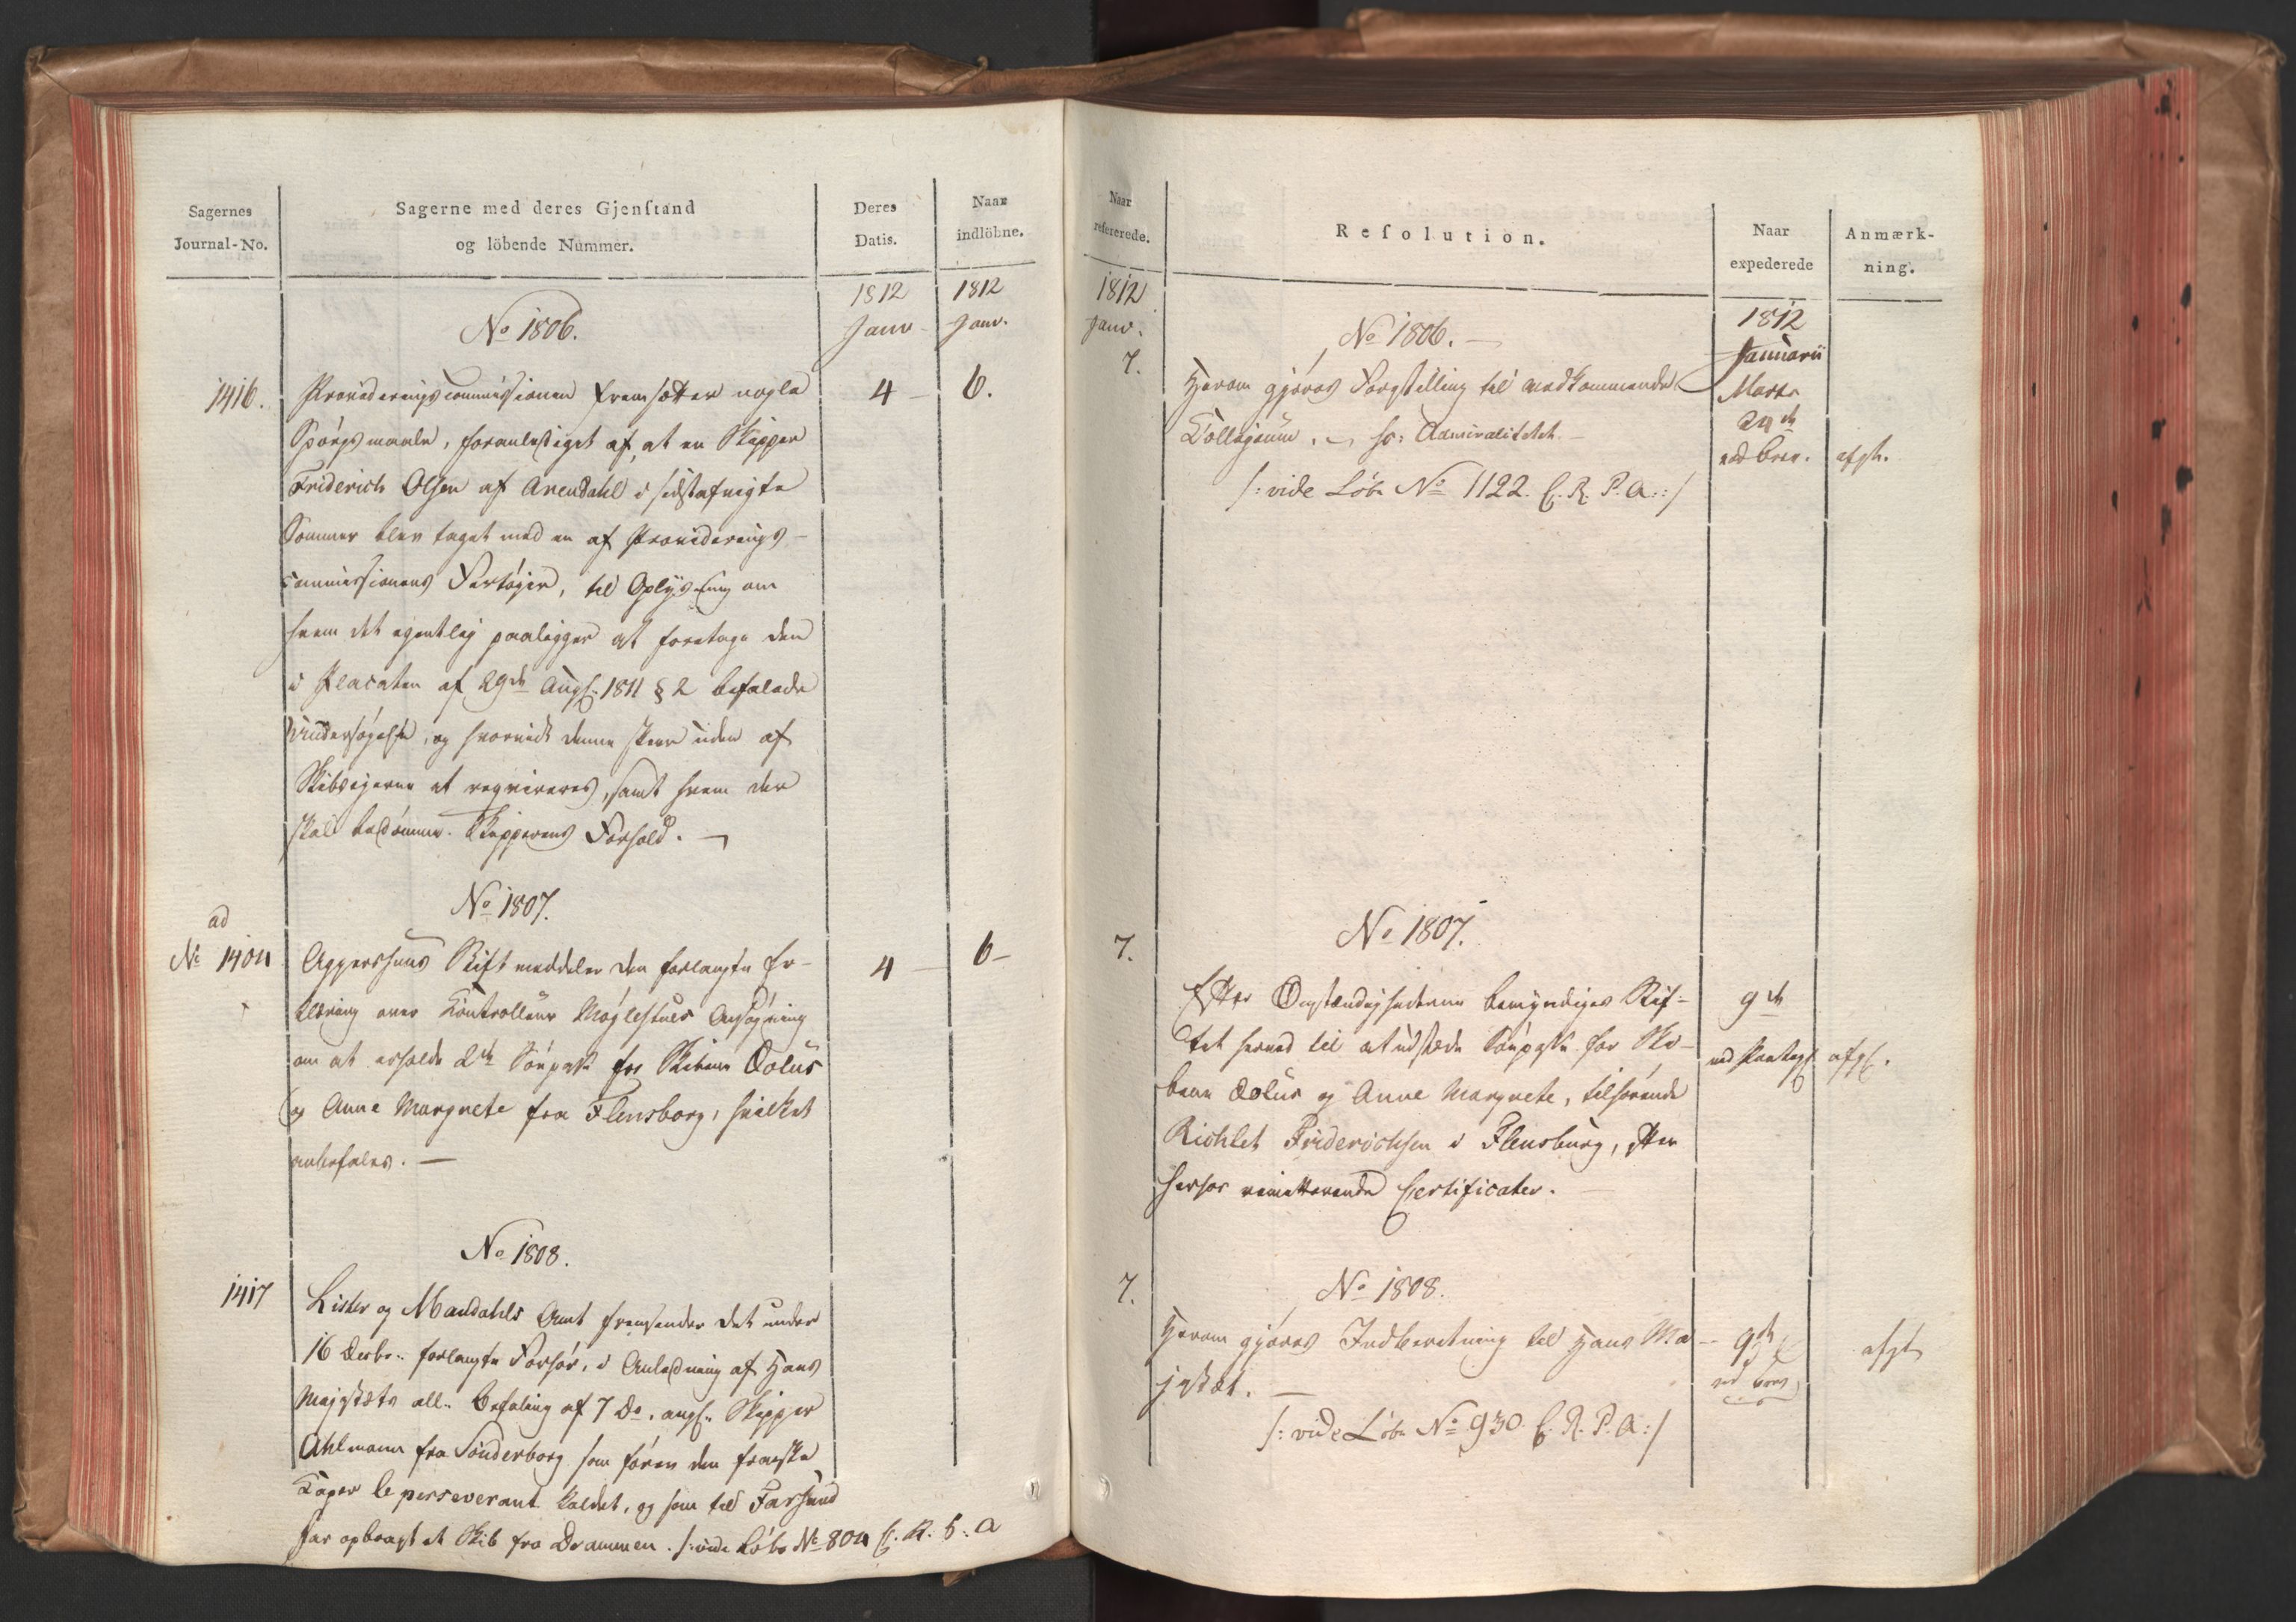 Sagernes
Journal-No.
Sagerne med deres Gjenstand
og löbende Nummer.
Deres
Datis.
Naar
indlöbne.
1812
Janv.
1812
Janv.
No 1806.
1416.
Provideringscommissionen fremsætter nogle
4
6.
Spörgsmaale, foranlediget af, at en Skipper
Friderich Olsen af Arendahl i sidstafvigte
Sommer blev taget med en af Providerings-
commissionens Fartöjer, til Oplysning om
hvem det egentlig paaligger at foretage den
i Placaten af 29de Augs: 1811 § 2 befalede
Undersögelse, og hvorvidt denne skeer uden af
Skibsejerne at reqvireres, samt hvem der
skal bedömme Skipperens Forhold.
No 1807.
ad
No 1404
Aggershuus Stift meddeler den forlangte Er-
4
6
klæring over Controlleur Möglestues Ansögning
om at erholde 2de Söepasse for Skibene Æolus
og Anne Margrete fra Flensborg, hvilket
anbefales.
No 1808.
1417
Lister og Mandahls Amt fremsender det under
16 Decbr: forlangte Forhör, i Anledning af Hans
Majestæts all: Befaling af 7 Do, ang: Skipper
Ahlmann fra Sönderborg som förer den franske
Caper le perseverant kaldet, og som til Farsund
har opbragt et Skib fra Drammen. /: vide Löbe No 804 C. R. P. A
Naar
refererede.
Resolution.
Naar
expederede
Anmærk-
ning.
1812
Janv.
1812
Januarii
No 1806.
7.
Herom gjöres Forestilling til vedkommende
Collegium, Admiralitetet.
Marts
24de
ved Brev.
afgt.
/: vide Löbe No 1122. C. R. P. A. :/
No 1807.
7.
Efter Omstændighederne bemyndiges Stif-
9de
tet herved til at udstæde Söepasse for Ski-
ved Paategn:
afg:.
bene Æolus og Anne Margrete, tilhörende
Richlet Friderichsen i Flensburg, efter
herhos remitterende Certificater.
No 1808.
7.
Herom gjöres Indberetning til Hans Ma
9de
ved Brev
afgt
jestæt.
/: vide Löbe No 930. C. R. P. A :/